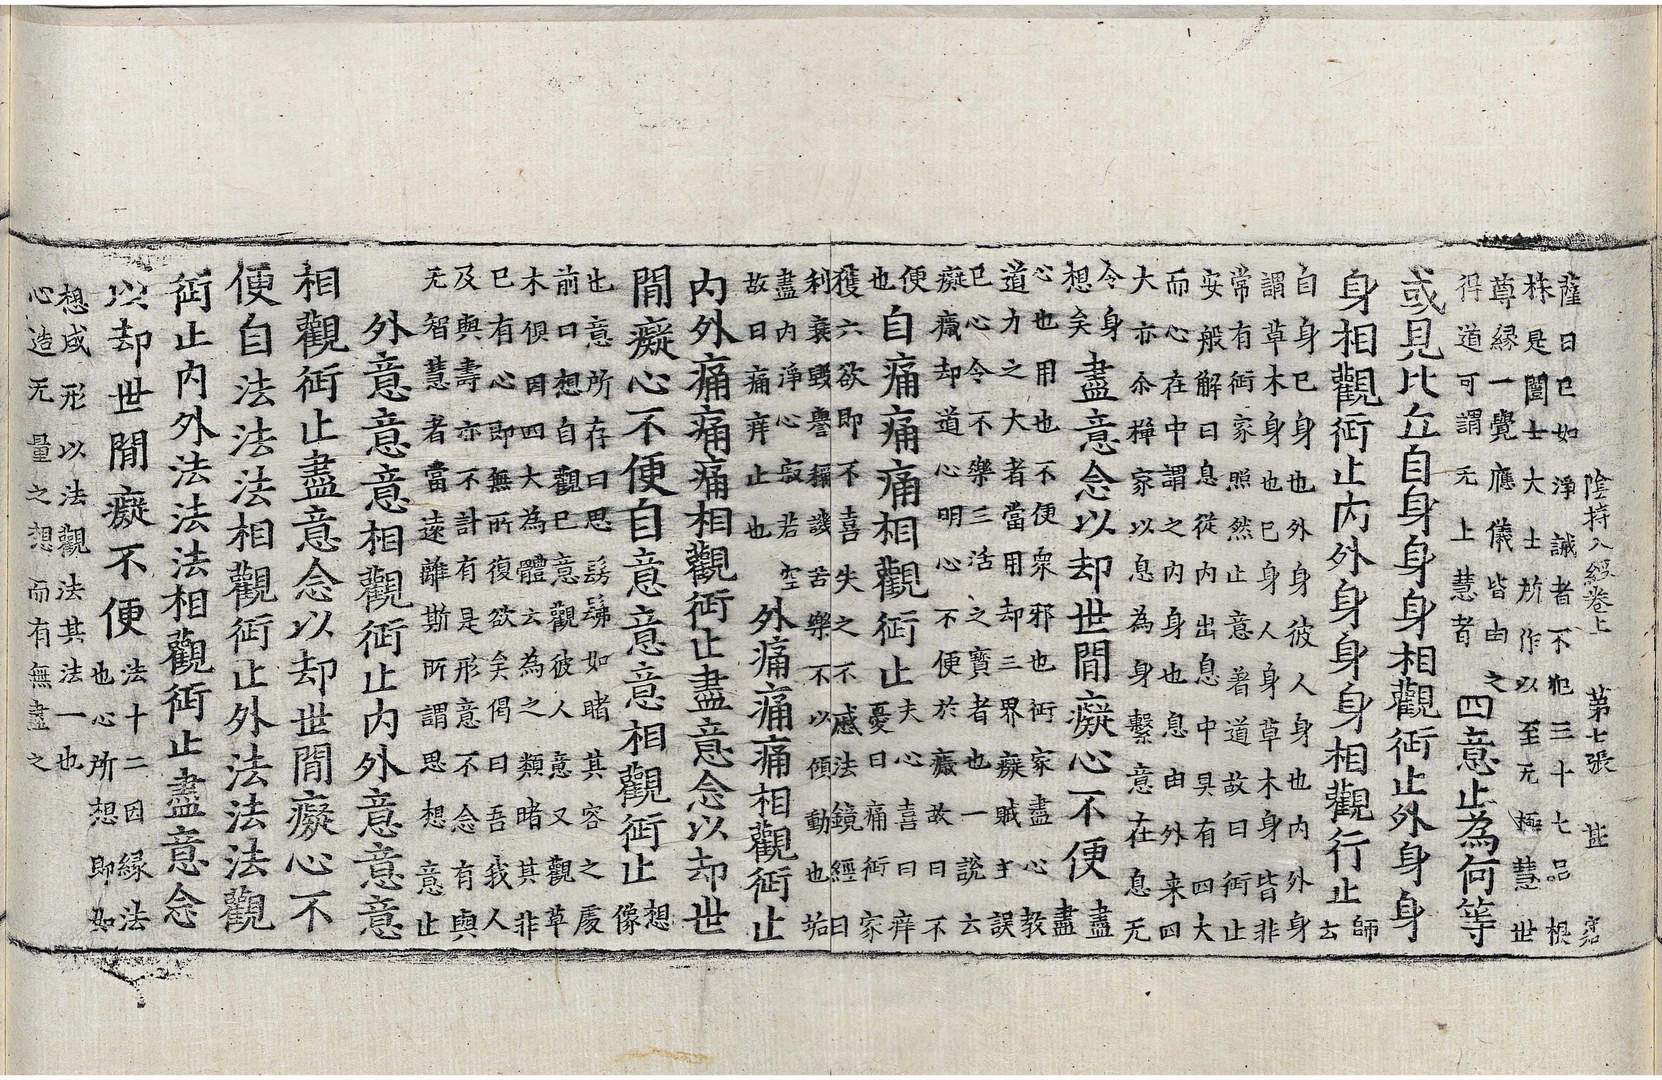 陰持入經卷上 第七張 甚
薩曰已如淨誡者不犯三十七品根
株是闓士大士所作以至无極慧世
尊緣一覺應儀皆由之
得道可謂无上慧者
四意止為何等
或見比丘自身身身相觀行止外身身
身相觀行止內外身身身相觀行止
師
云
自身己身也外身彼人身也內外身
謂草木身也己身人身草木身皆非
常有行家照然止意著道故曰行止
安般解曰息從內出息中具有四大
而心在中謂之內身也息由外来四
大亦尒禪家以息為身繫意在息无
令身
想矣
盡意念以却世間癡心不便
盡
盡
心也用也不便衆邪也行家盡心教
道力之大者當用却三界癡賊主誤
已心令不樂三活之寶者也一說云
癡癥却道心明心不便於癥故曰不
便
也
自痛痛痛相觀行止
夫心喜曰痒
憂曰痛行家
獲六欲即不喜失之不慼法鏡經曰
利衰毀譽稱譏苦樂不以傾動也垢
盡內淨心寂若空
故曰痛痒止也
外痛痛痛相觀行止
內外痛痛痛相觀行止盡意念以却世
間癡心不便自意意意相觀行止
想
像
也意所存曰思髣髴如睹其容之處
前曰想自觀己意觀彼人意又觀草
木俱因四大為體云為之類睹其非
已有心即無所復欲矣偈曰吾我人
及與壽亦不計有是形意不念有與
无智慧者當遠離斯所謂思想意止
外意意意相觀行止內外意意意
相觀行止盡意念以却世間癡心不
便自法法法相觀行止外法法法觀
行止內外法法法相觀行止盡意念
以却世間癡不便
法十二因緣法
也心所想即如
想成形以法觀法其法一也
心造无量之想而有無盡之